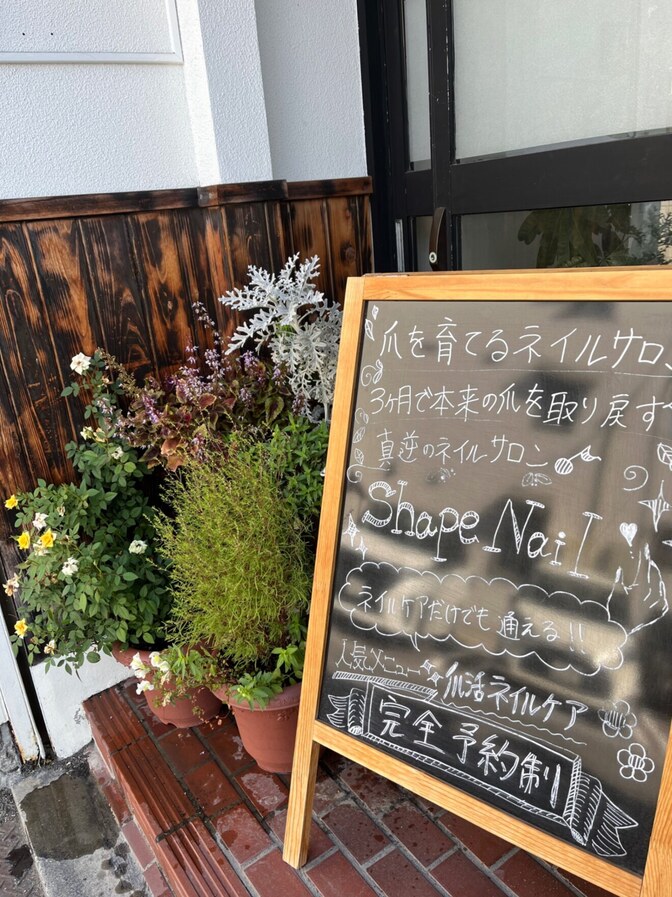 爪を育てるネイルサロ
3ヶ月で本来の爪を取り戻す
真逆のネイルサロン
Shape Nail
ネイルケアだけでも通える!!
人気メニュー
爪活ネイルケア
完全予約制